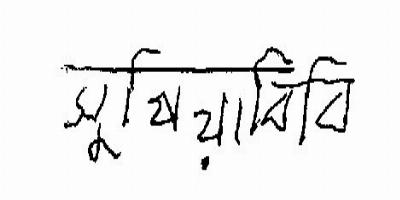 সুফিয়াবিবি